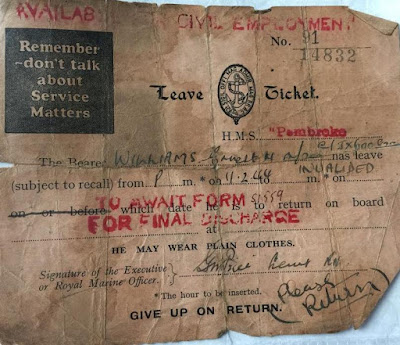 AVAILAB
CIVIL EMPLOYMENT
Remember
-don't talk
about
Service
Matters
No. 91
14832
Leave Ticket.
H.M.S. "Pembroke
The Bearer WILLIAMS Ernest H has leave
INVALIDED
(subject to recall) from P m. * on 11.2.48 m. * on
TO AWAIT FORM S1559
on or before which date he is to return on board
FOR FINAL DISCHARGE
at
HE MAY WEAR PLAIN CLOTHES.
Signature of the Executive
or Royal Marine Officer.
* The hour to be inserted.
Please
Return
GIVE UP ON RETURN.